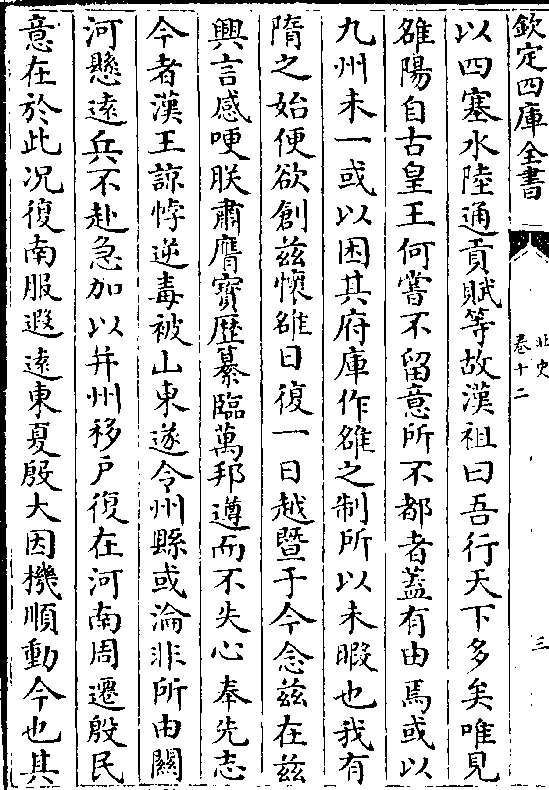 欽定四庫全書
北史
卷十二
三
以四塞水陸通貢賦等故漢祖曰吾行天下多矣唯見
雒陽自古皇王何嘗不留意所不都者蓋有由焉或以
九州未一或以困其府庫作雒之制所以未暇也我有
隋之始便欲創兹懷雒日復一日越暨于今念兹在兹
興言感哽朕肅膺寶歴纂臨萬邦遵而不失心奉先志
今者漢王諒悖逆毒被山東遂令州縣或淪非所由關
河懸逺兵不赴急加以并州移戸復在河南周遷殷民
意在於此况復南服遐逺東夏殷大因機順動今也其